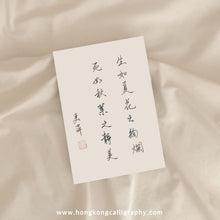 生如夏花之絢爛
死如秋葉之靜美
www.hongkongcalligraphy.com